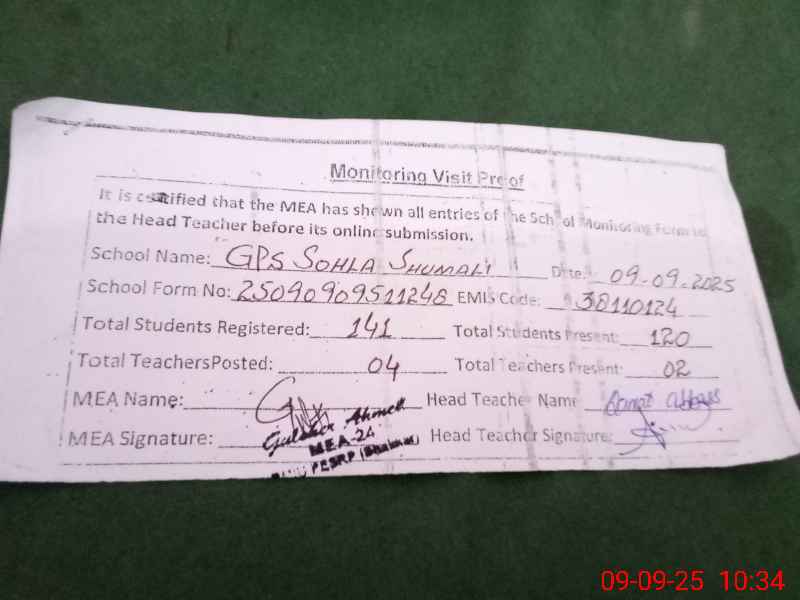 Monitoring Visit Proof
It is certified that the MEA has shown all entries of the School Monitoring Form to
the Head Teacher before its online submission.
School Name: GPS SOHLA SHUMALI Date: 09-09-2025
School Form No: 25090909511248 EMIS Code: 38110124
Total Students Registered: 141 Total Students Present: 120
Total Teachers Posted: 04 Total Teachers Present: 02
MEA Name: Head Teacher Name
Ahmed
MEA Signature: Head Teacher Signature:
MEA-24
09-09-25 10:34